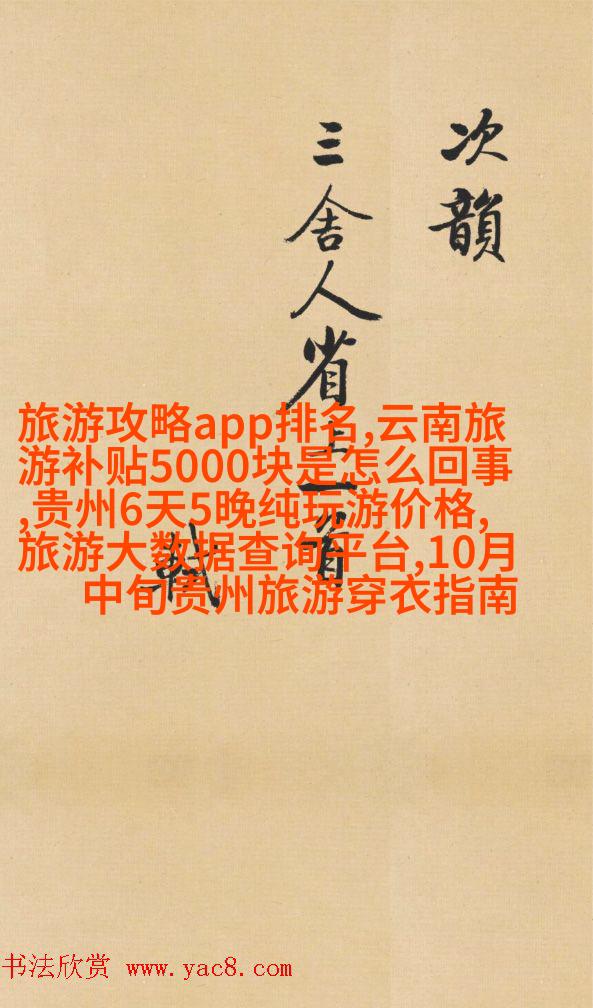 次韻
三舍人省上一首
軾
旅游攻略app排名,云南旅
游补贴5000块是怎么回事
,贵州6天5晚纯玩游价格,
旅游大数据查询平台,10月
中旬贵州旅游穿衣指南
书法欣赏 www.yac8.com